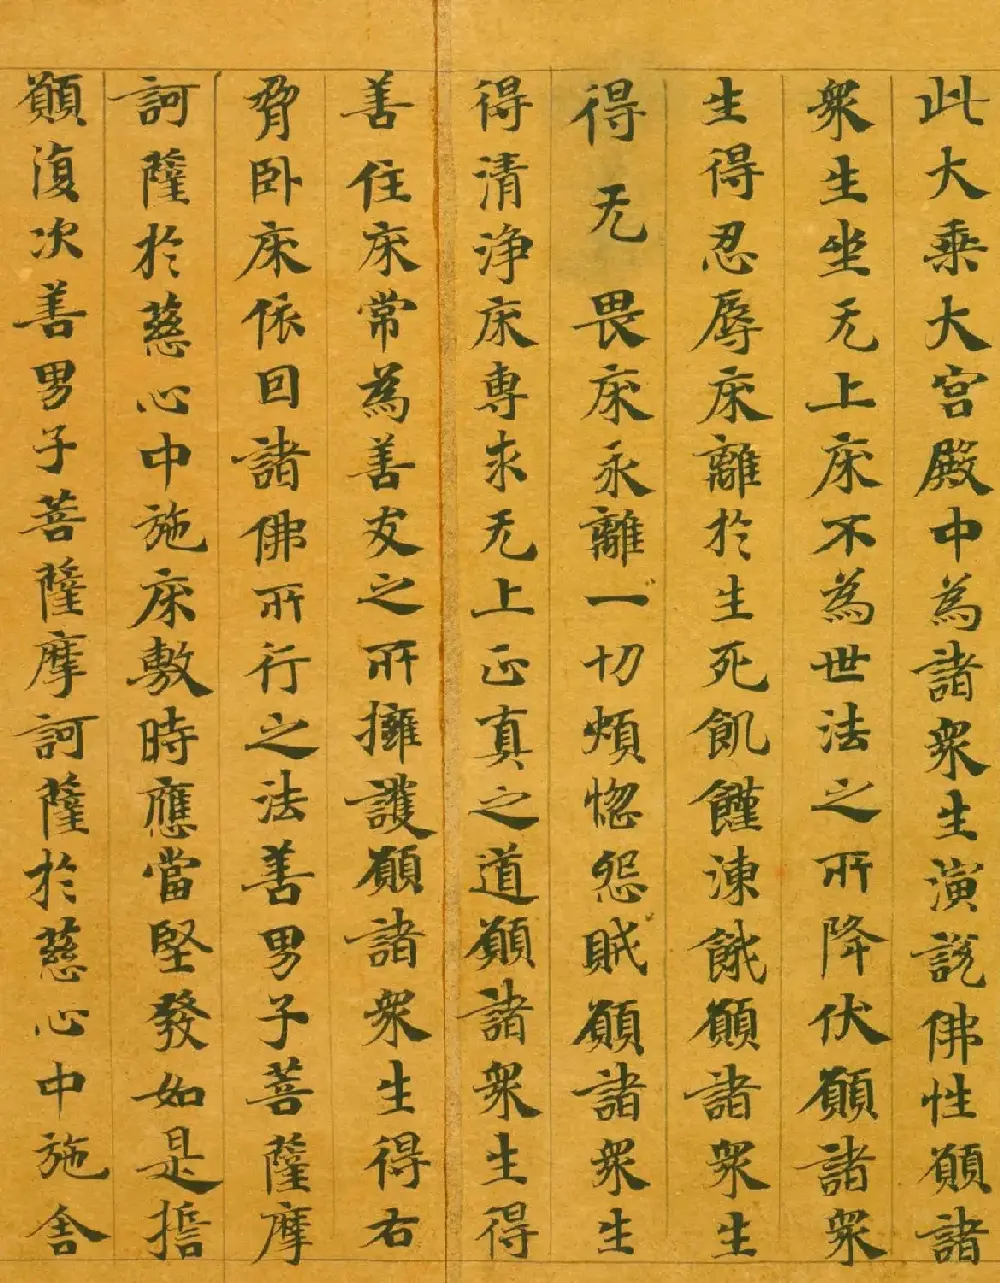 此大乘大宮殿中為諸衆生演說佛性願諸
衆生坐无上床不為世法之所降伏願諸衆
生得忍辱床離於生死飢饉凍餓願諸衆生
得无畏床永離一切煩惱怨賊願諸衆生
得清淨床專求无上正真之道願諸衆生得
善住床常為善友之所擁護願諸衆生得右
脅臥床依回諸佛所行之法善男子菩薩摩
訶薩於慈心中施床敷時應當堅發如是誓
願復次善男子菩薩摩訶薩於慈心中施舍